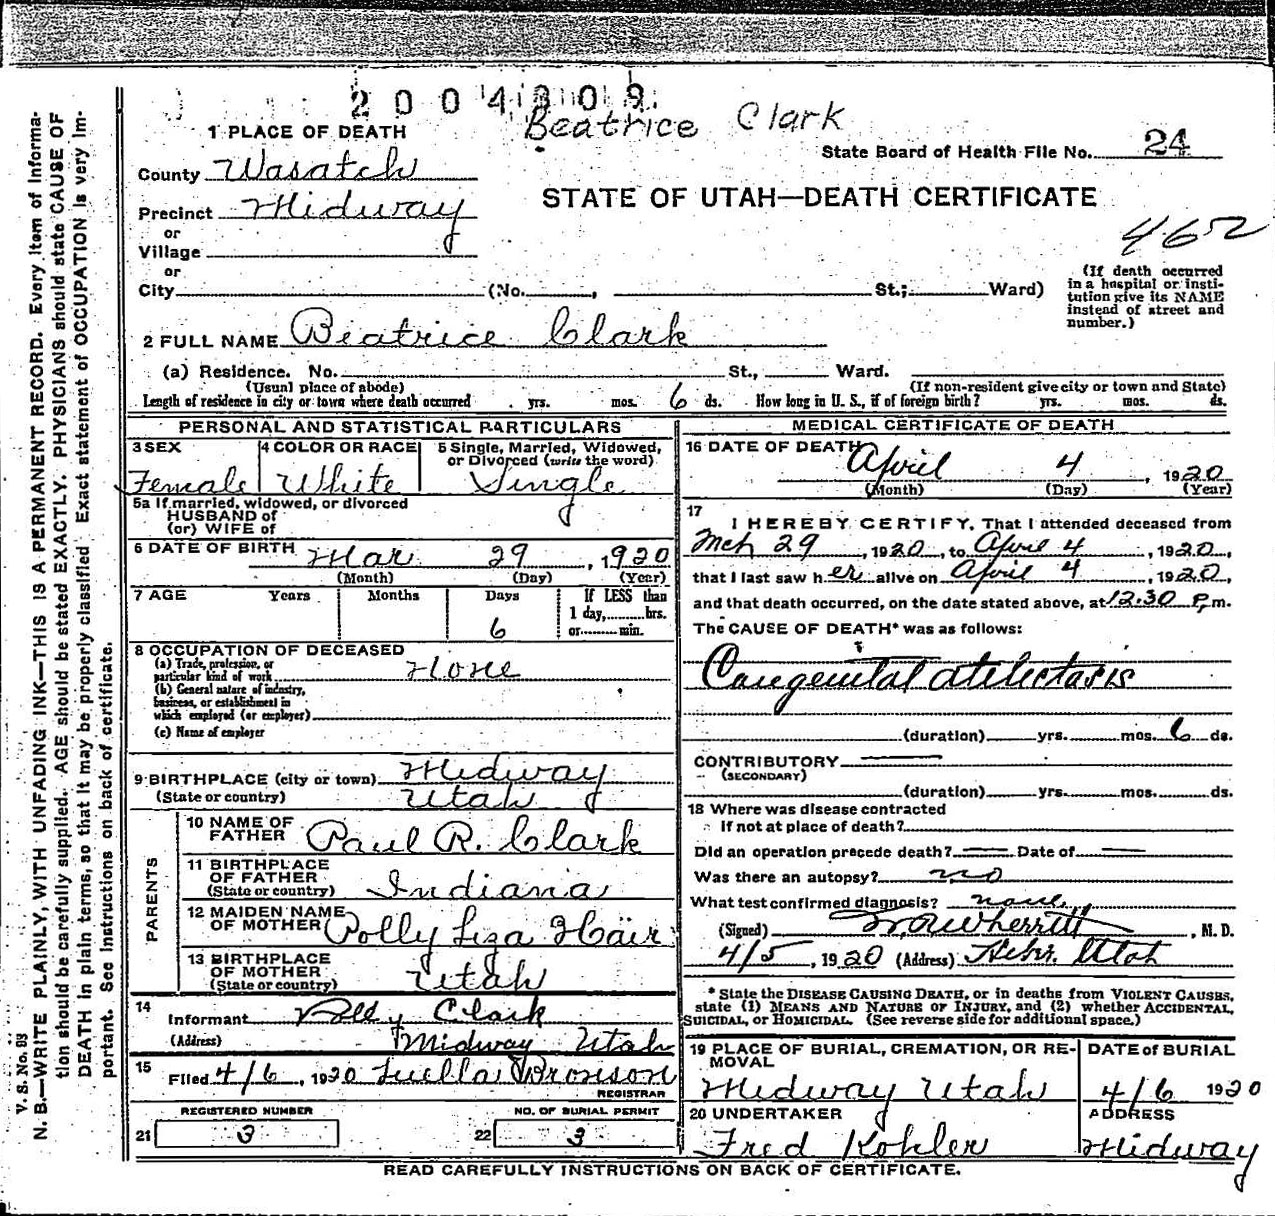 2004309
Beatrice Clark
1 PLACE OF DEATH
State Board of Health File No. 24
County Wasatch
STATE OF UTAH—DEATH CERTIFICATE
Precinct Midway
or
462
Village
or
City (No. , St.; Ward)
(If death occurred in a hospital or insti-
tution give its NAME
instead of street and
number.)
2 FULL NAME Beatrice Clark
(a) Residence. No. St., Ward.
(Usual place of abode) (If non-resident give city or town and State)
Length of residence in city or town where death occurred yrs. mos. 6 ds. How long in U. S., if of foreign birth? yrs. mos. ds.
PERSONAL AND STATISTICAL PARTICULARS
3 SEX 4 COLOR OR RACE 5 Single, Married, Widowed,
or Divorced (write the word)
Female White Single
5a If married, widowed, or divorced
HUSBAND of
(or) WIFE of
6 DATE OF BIRTH Mar 29, 1920
(Month) (Day) (Year)
7 AGE Years Months Days If LESS than
1 day, hrs.
6 or min.
8 OCCUPATION OF DECEASED
(a) Trade, profession, or
particular kind of work None
(b) General nature of industry,
business, or establishment in
which employed (or employer)
(c) Name of employer
9 BIRTHPLACE (city or town) Midway
(State or country) Utah
PARENTS
10 NAME OF
FATHER Paul R. Clark
11 BIRTHPLACE
OF FATHER
(State or country) Indiana
12 MAIDEN NAME
OF MOTHER Polly Liza Hair
13 BIRTHPLACE
OF MOTHER
(State or country) Utah
14
Informant Polly Clark
(Address) Midway Utah
15
Filed 4/6, 1920 Luella Bronson
REGISTRAR
REGISTERED NUMBER NO. OF BURIAL PERMIT
21 3 22 3
MEDICAL CERTIFICATE OF DEATH
16 DATE OF DEATH
April 4, 1920
(Month) (Day) (Year)
17
I HEREBY CERTIFY, That I attended deceased from
Mch 29, 1920, to April 4, 1920,
that I last saw h er alive on April 4, 1920,
and that death occurred, on the date stated above, at 12.30 P m.
The CAUSE OF DEATH* was as follows:
Congenital atelectasis
(duration) yrs. mos. 6 ds.
CONTRIBUTORY
(SECONDARY)
(duration) yrs. mos. ds.
18 Where was disease contracted
If not at place of death?
Did an operation precede death? — Date of —
Was there an autopsy? no
What test confirmed diagnosis? none
(Signed) Wherritt, M. D.
4/5, 1920 (Address) Heber Utah
* State the DISEASE CAUSING DEATH, or in deaths from VIOLENT CAUSES,
state (1) MEANS AND NATURE OF INJURY, and (2) whether ACCIDENTAL,
SUICIDAL, or HOMICIDAL. (See reverse side for additional space.)
19 PLACE OF BURIAL, CREMATION, OR RE-
MOVAL
DATE of BURIAL
Midway Utah 4/6 1920
20 UNDERTAKER ADDRESS
Fred Kohler Midway
READ CAREFULLY INSTRUCTIONS ON BACK OF CERTIFICATE.
V. S. No. 83
N. B.—WRITE PLAINLY, WITH UNFADING INK—THIS IS A PERMANENT RECORD. Every item of informa-
tion should be carefully supplied. AGE should be stated EXACTLY. PHYSICIANS should state CAUSE OF
DEATH in plain terms, so that it may be properly classified. Exact statement of OCCUPATION is very im-
portant. See instructions on back of certificate.